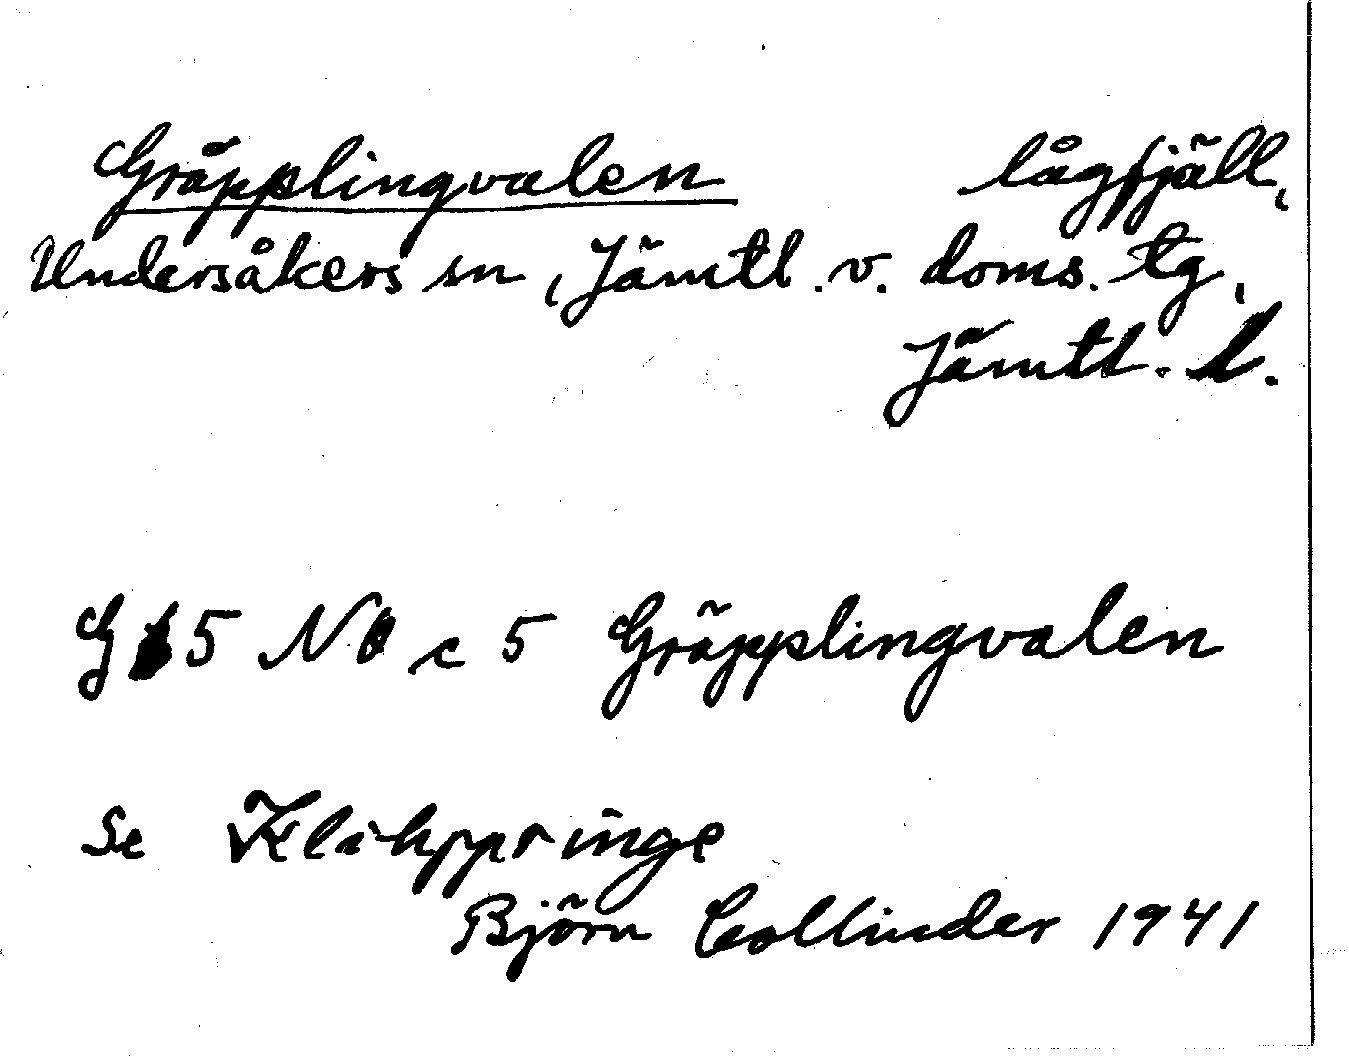 Gräpplingvalen lågfjäll,
Undersåkers sn, Jämtl. v. doms. tg,
Jämtl. l.
G 5 NO c 5 Gräpplingvalen
Se
Björn Collinder 1941